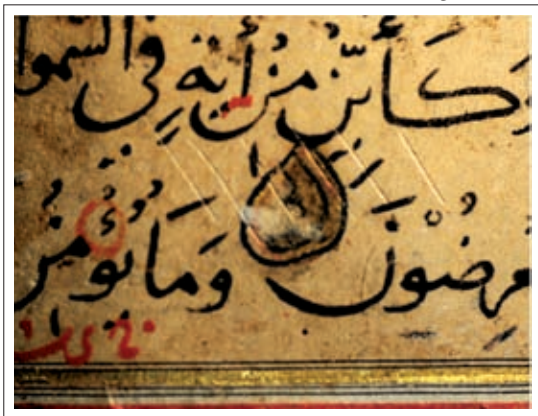 وَكَأَيِّنْ مِنْ أَيَةٍ فِي السَّمٰوا
عْرِضُوْنَ وَمَا يُؤْمِنُ